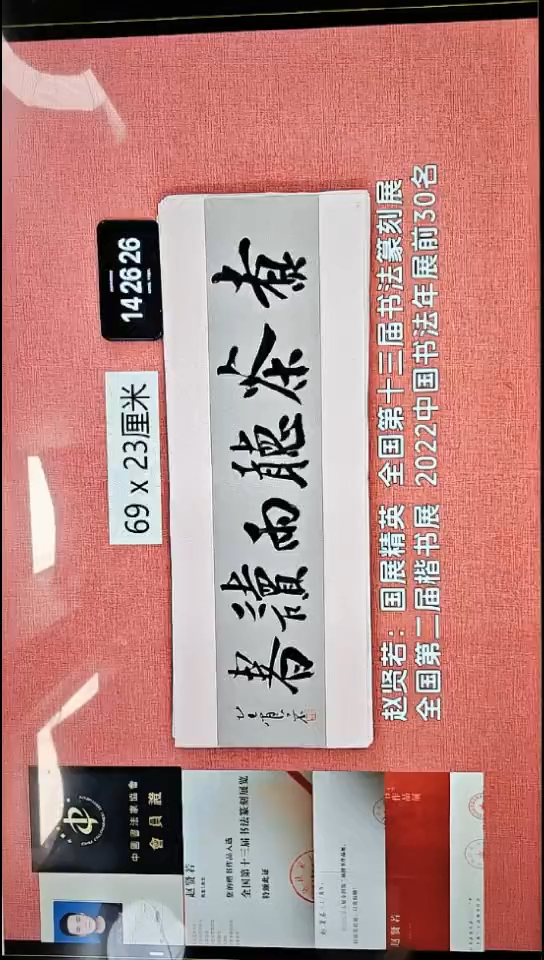 14 26 26
69 x 23厘米
煮茶聽雨讀春
赵贤若：国展精英 全国第十三届书法篆刻展
全国第二届楷书展 2022中国书法年展前30名
中國書法家協會
會員證
赵贤若
您的楷书作品入选
全国第十三届书法篆刻展览
特颁此证
赵贤若